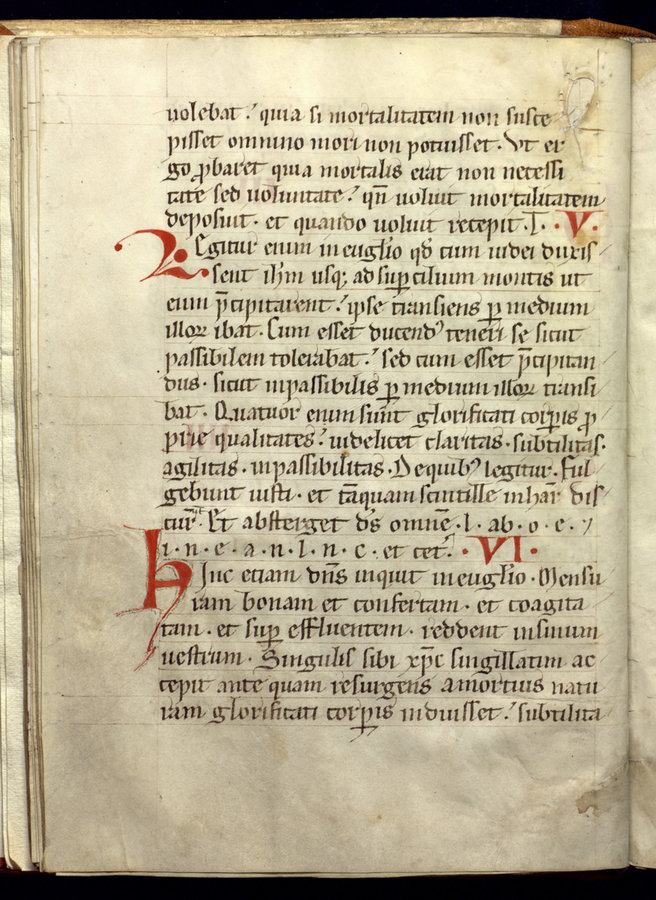 uolebat. quia si mortalitatem non susce
pisset omnino mori non potuisset. Vt er
go ꝓbaret quia mortalis erat non necessi
tate sed uoluntate. qn̄ uoluit mortalitatem
deposuit. et quando uoluit recepit. I. .V.
Legitur enim in euglio qd̄ cum iudei duxis
sent ihm̄ usq; ad suꝑcilium montis ut
eum p̄cipitarent. ipse transiens ꝑ medium
illoꝝ ibat. Cum esset ducendꝰ teneri se sicut
passibilem tolerabat. sed cum esset p̄cipitan
dus. sicut inpassibilis ꝑ medium illoꝝ transi
bat. Quatuor enim sunt glorificati corꝑis ꝓ
prie qualitates. uidelicet claritas. subtilitas.
agilitas. inpassibilitas. De quibꝰ legitur. Ful
gebunt iusti. et tāquam scintille in har̄ dis
cur̄. Et absterget ds̄ omnē. l. ab. o. e. 7
i. n. e. a. n. l. n. c. et cet̄. .VI.
Hinc etiam dn̄s inquit in euglio. Mensu
ram bonam et confertam. et coagita
tam. et suꝑ effluentem. reddent in sinum
uestrum. Singulis sibi xp̄c singillatim ac
cepit ante quam resurgens a mortuis natu
ram glorificati corꝑis induisset. subtilita